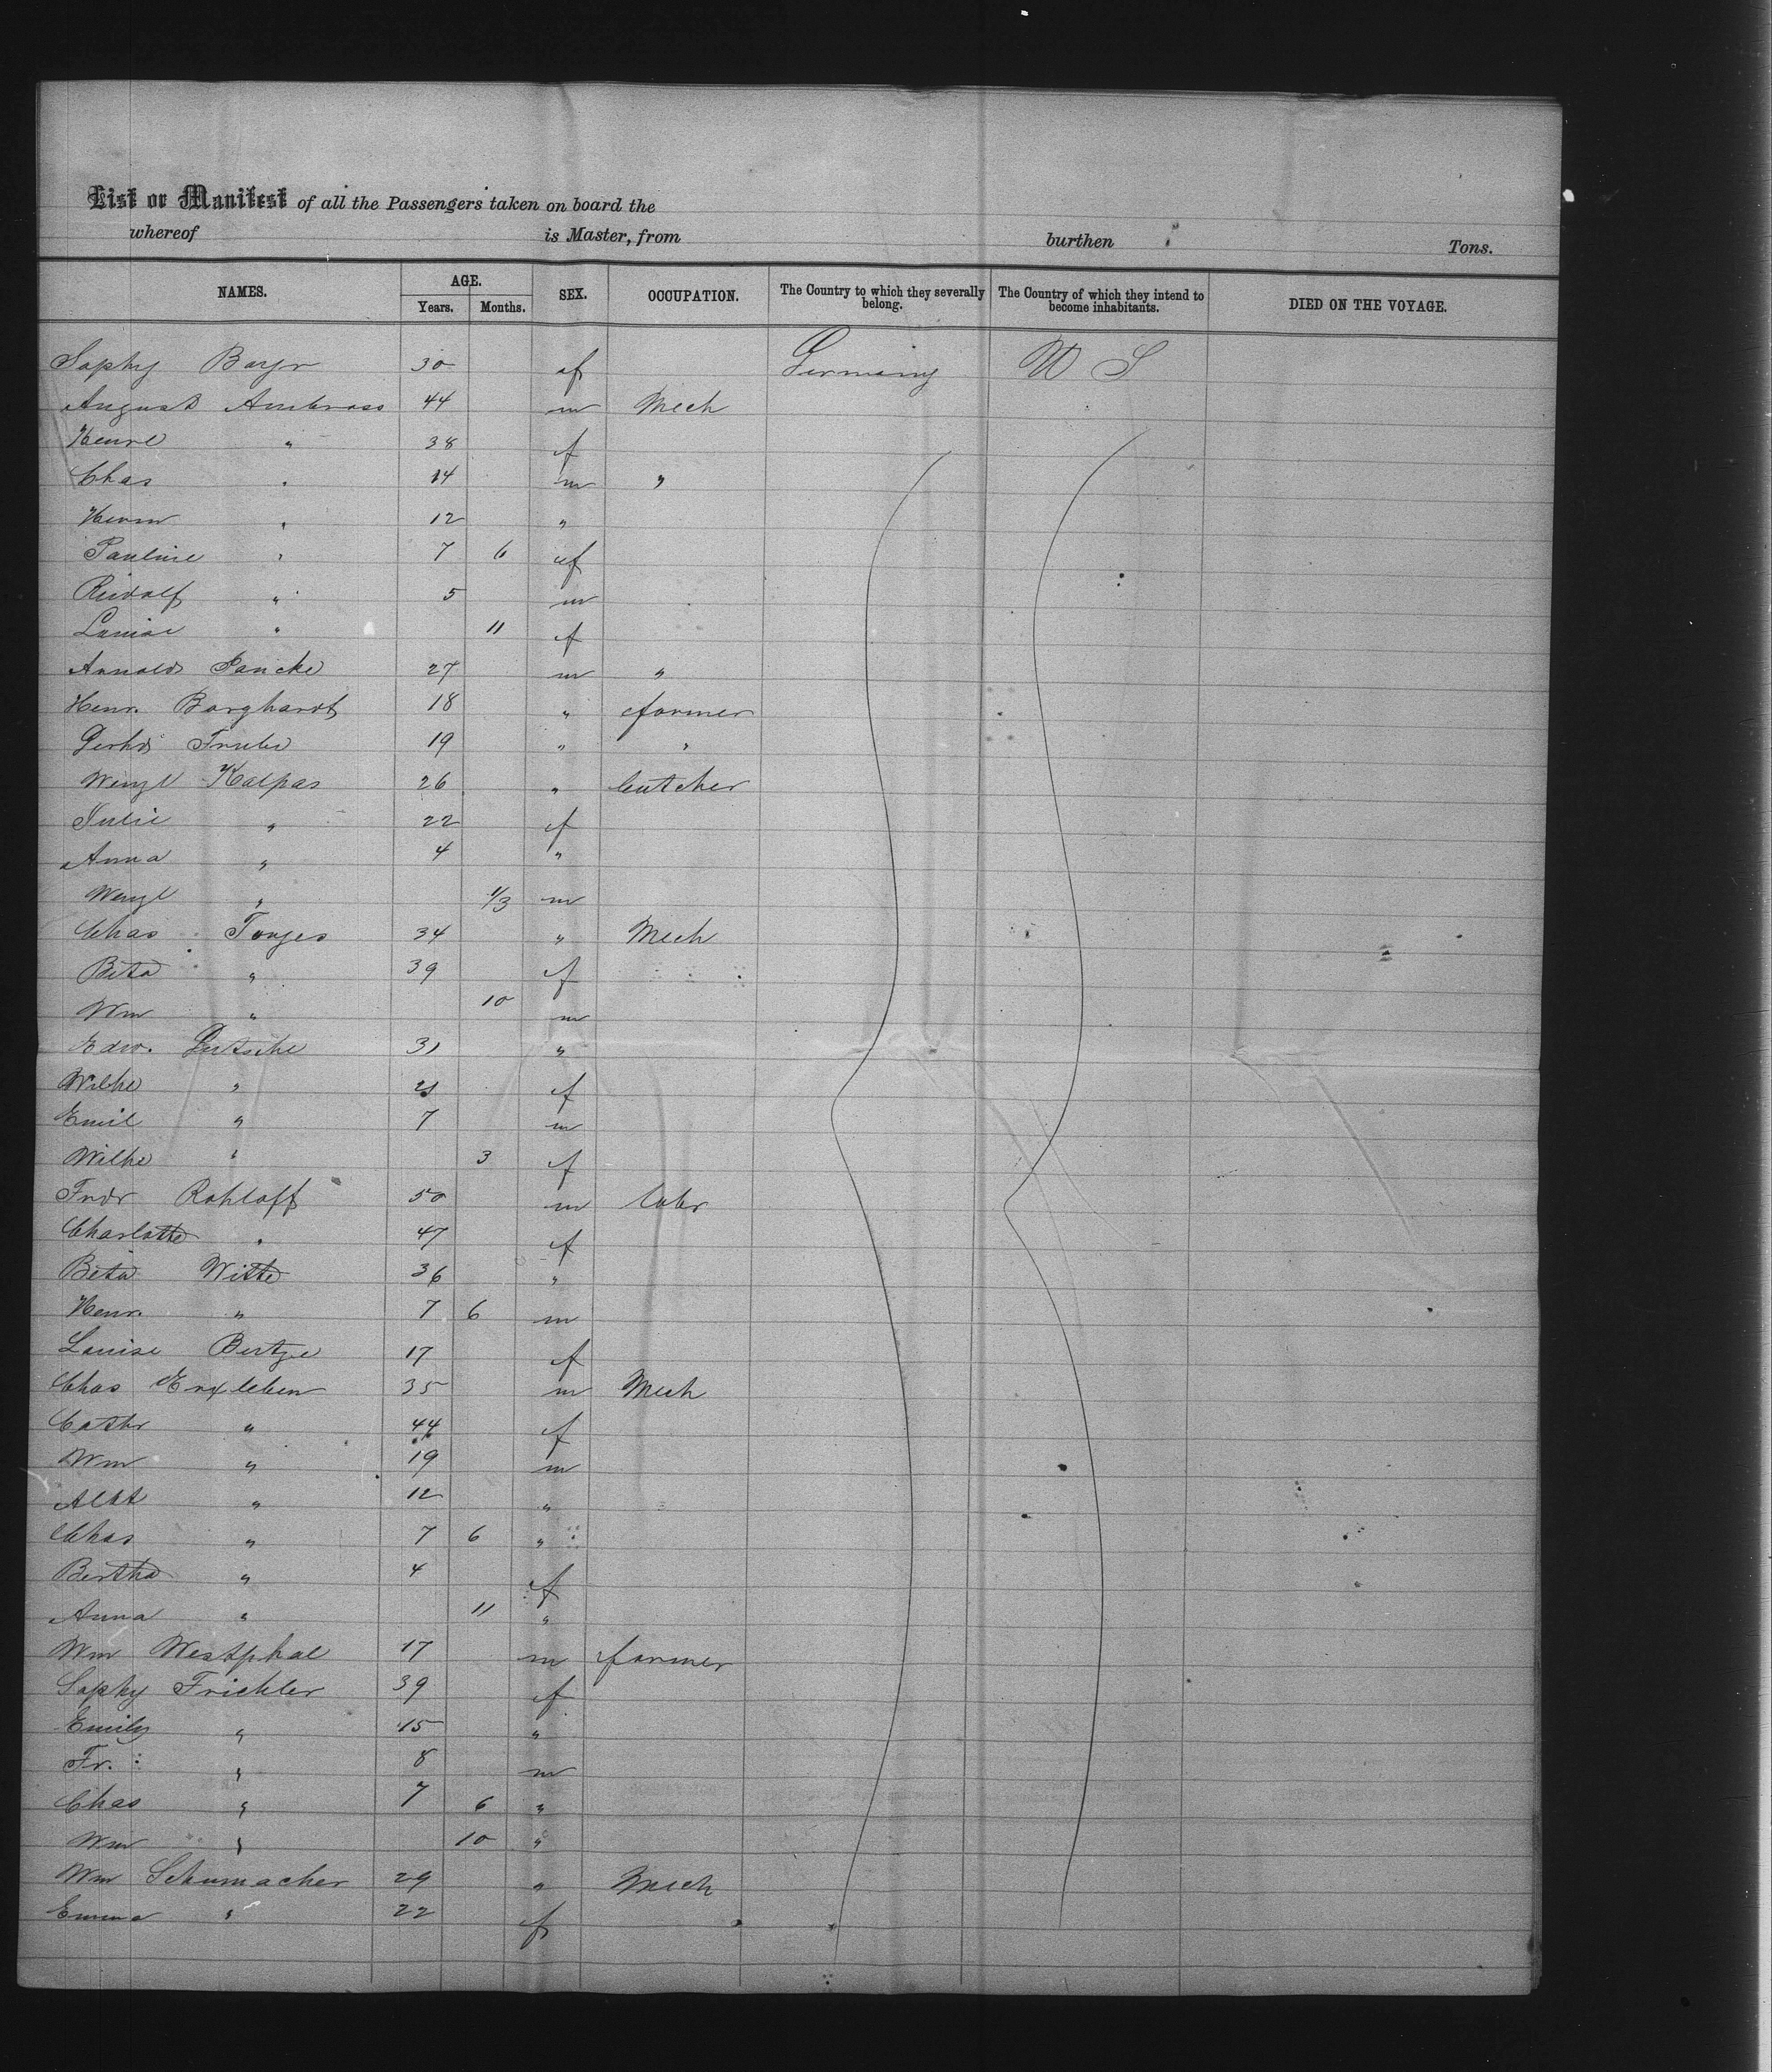 List or Manifest of all the Passengers taken on board the
whereof is Master, from burthen Tons.
NAMES. AGE. Years. Months. SEX. OCCUPATION. The Country to which they severally belong. The Country of which they intend to become inhabitants. DIED ON THE VOYAGE.
Sophy Bayr 30 f Germany U S
August Ambross 44 m Mech
Henre " 38 f
Chas " 14 m "
Herm " 12 "
Pauline " 7 6 f
Rudolf " 5 m
Louise " 11 f
Arnold Pancke 27 m "
Henr. Borghardt 18 " farmer
Gerhd 19 " "
Wenzl Kalpas 26 " butcher
Julie " 22 f
Anna " 4 "
Wenzl " 1/3 m
Chas Tonges 34 " Mech
Beta " 39 f
Wm " 10 m
Edw. Gutsche 31 "
Wilhe " f
Emil " 7 m
Wilhe " 3 f
Frdr Rohloff 50 m labr
Charlotte " 47 f
Beta Witte 36 "
Henr. " 7 6 m
Louise Bertge 17 f
Chas Erxleben 35 m Mech
Cathr " 44 f
Wm " 19 m
Albt " 12 "
Chas " 7 6 "
Bertha " 4 f
Anna " 11 "
Wm Westphal 17 m farmer
Sophy Frickler 39 f
Emily " 15 "
Fr. " 8 m
Chas " 7 6 "
Wm " 10 "
Wm Schumacher 29 " Mech
Emma " 22 f